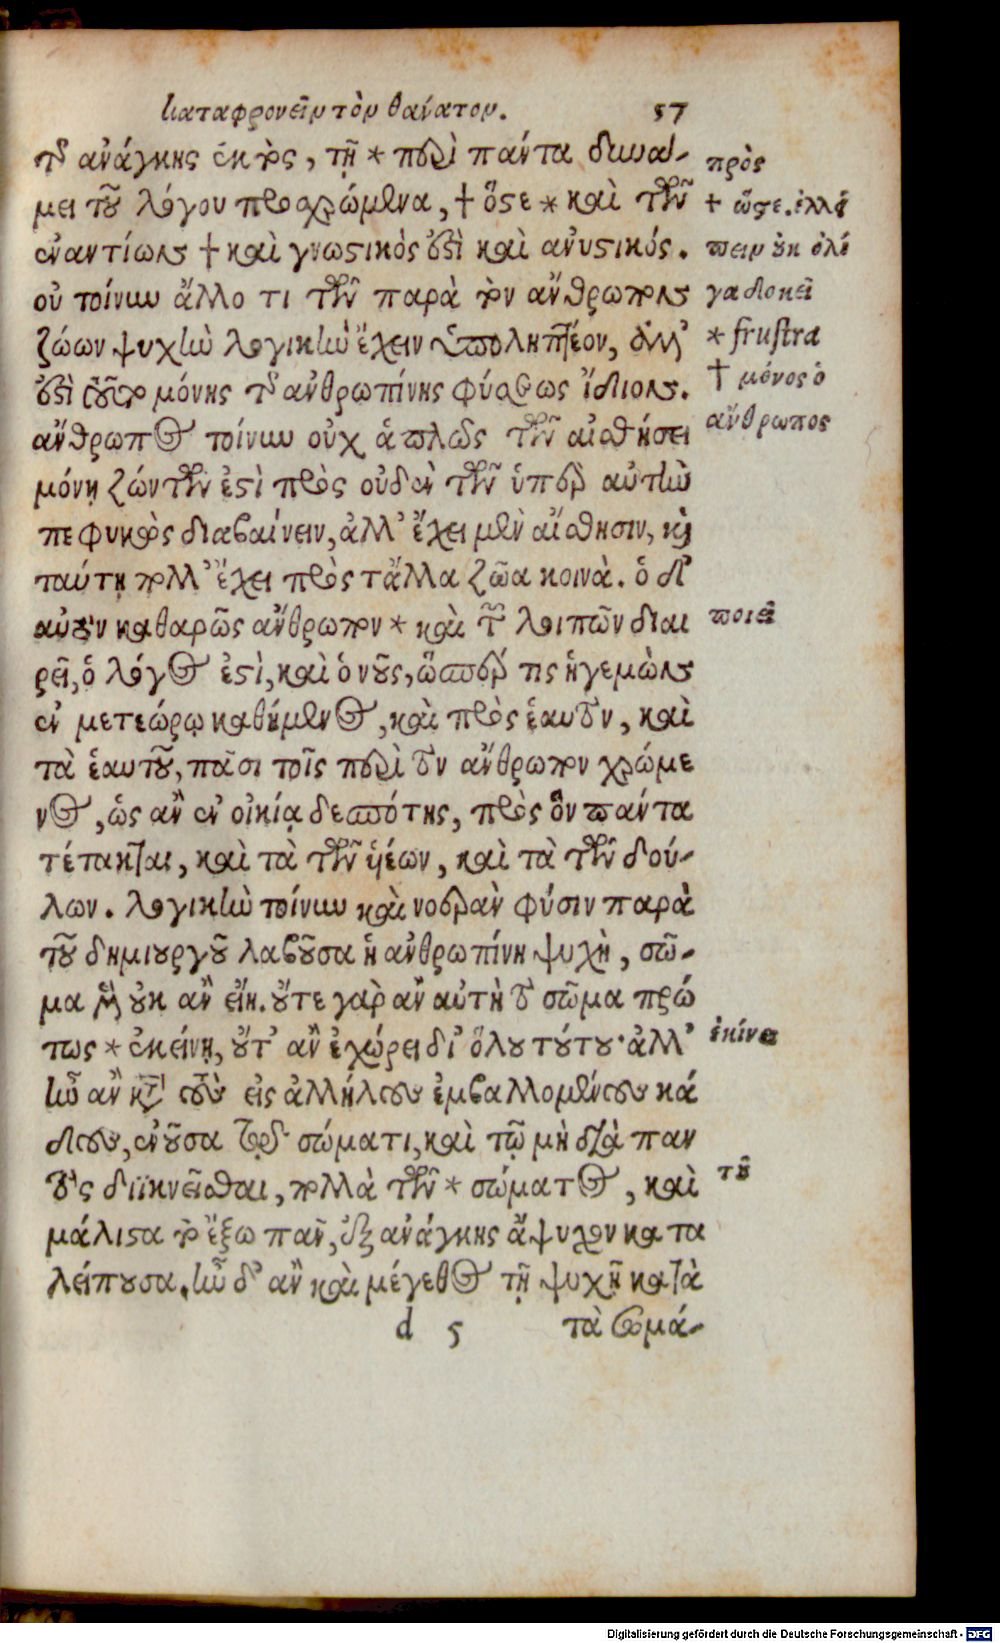 καταφρονεῖν τὸν θάνατον. 57
τῆς ἀνάγκης ἐκτὸς, τῇ * περὶ πάντα δυνά-
μει τοῦ λόγου προχρώμενα, † ὅστε * καὶ τῶν
ἐναντίων † καὶ γνωστικὸς ἐστὶ καὶ ἀνυστικός.
οὐ τοίνυν ἄλλο τι τῶν παρὰ τὸν ἄνθρωπον
ζώων ψυχὴν λογικὴν ἔχειν ὑποληπτέον, ἀλλ᾽
ἐστὶ τοῦτο μόνης τῆς ἀνθρωπίνης φύσεως ἴδιον.
ἄνθρωπος τοίνυν οὐχ ἁπλῶς τῶν αἰσθήσει
μόνῃ ζώντων ἐστὶ πρὸς οὐδὲν τῶν ὑπὲρ αὐτὴν
πεφυκὸς διαβαίνειν, ἀλλ᾽ ἔχει μὲν αἴσθησιν, καὶ
ταύτῃ πολλ᾽ ἔχει πρὸς τἄλλα ζῶα κοινὰ. ὁ δ᾽
αὐτὸν καθαρῶς ἄνθρωπον * καὶ τῶν λοιπῶν διαι
ρεῖ, ὁ λόγος ἐστὶ, καὶ ὁ νοῦς, ὥσπερ τις ἡγεμὼν
ἐν μετεώρῳ καθήμενος, καὶ πρὸς ἑαυτὸν, καὶ
τὰ ἑαυτοῦ, πᾶσι τοῖς περὶ τὸν ἄνθρωπον χρώμε
νος, ὡς ἂν ἐν οἰκίᾳ δεσπότης, πρὸς ὃν πάντα
τέτακται, καὶ τὰ τῶν υἱέων, καὶ τὰ τῶν δού-
λων. λογικὴν τοίνυν καὶ νοερὰν φύσιν παρὰ
τοῦ δημιουργοῦ λαβοῦσα ἡ ἀνθρωπίνη ψυχὴ, σῶ-
μα μὲν οὐκ ἂν εἴη. οὔτε γὰρ ἂν αὐτὴ τὸ σῶμα πρώ
τως * ἐκείνῃ, οὔτ᾽ ἂν ἐχώρει δι᾽ ὅλου τούτου· ἀλλ᾽
ἦν ἂν κατὰ τοὺς εἰς ἀλλήλους ἐμβαλλομένους κά
δους, ἐνοῦσα τῷ σώματι, καὶ τῷ μὴ διὰ παν
τὸς διϊκνεῖσθαι, πολλὰ τῶν * σώματος, καὶ
μάλιστα τὸ ἔξω πᾶν, ἐξ ἀνάγκης ἄψυχον κατα
λείπουσα. ἦν δ᾽ ἂν καὶ μέγεθος τῇ ψυχῇ κατὰ
d 5 τὰ σωμά-
πρὸς
† ὥστε. ἐλλεί
πειν οὐκ ὀλί
γα δοκεῖ
* frustra
† μόνος ὁ
ἄνθρωπος
ποιεῖ
ἐκίνει
τοῦ
Digitalisierung gefördert durch die Deutsche Forschungsgemeinschaft - DFG